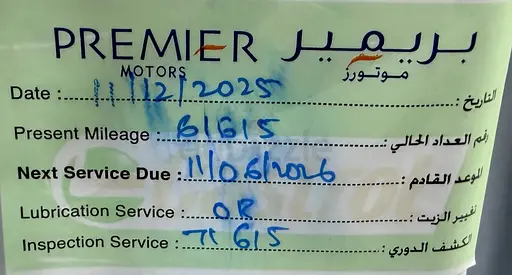 PREMIER بريمير
MOTORS موتورز
Date : 11/12/2025 التاريخ :
Present Mileage : 61615 رقم العداد الحالي :
Next Service Due : 11/06/2026 الموعد القادم :
Lubrication Service : OR تغيير الزيت :
Inspection Service : 71615 الكشف الدوري :